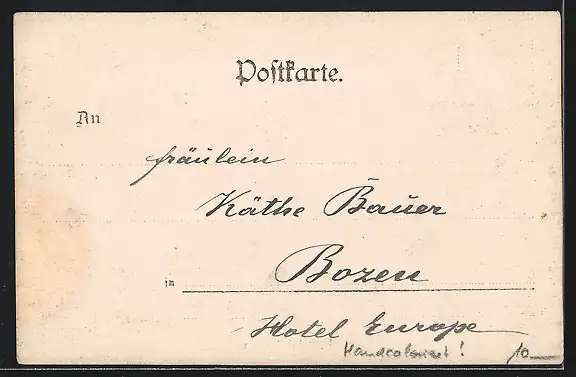 Postkarte.
An
Fräulein
Käthe Bauer
in Bozen
Hotel Europe
Handcoloriert! 10